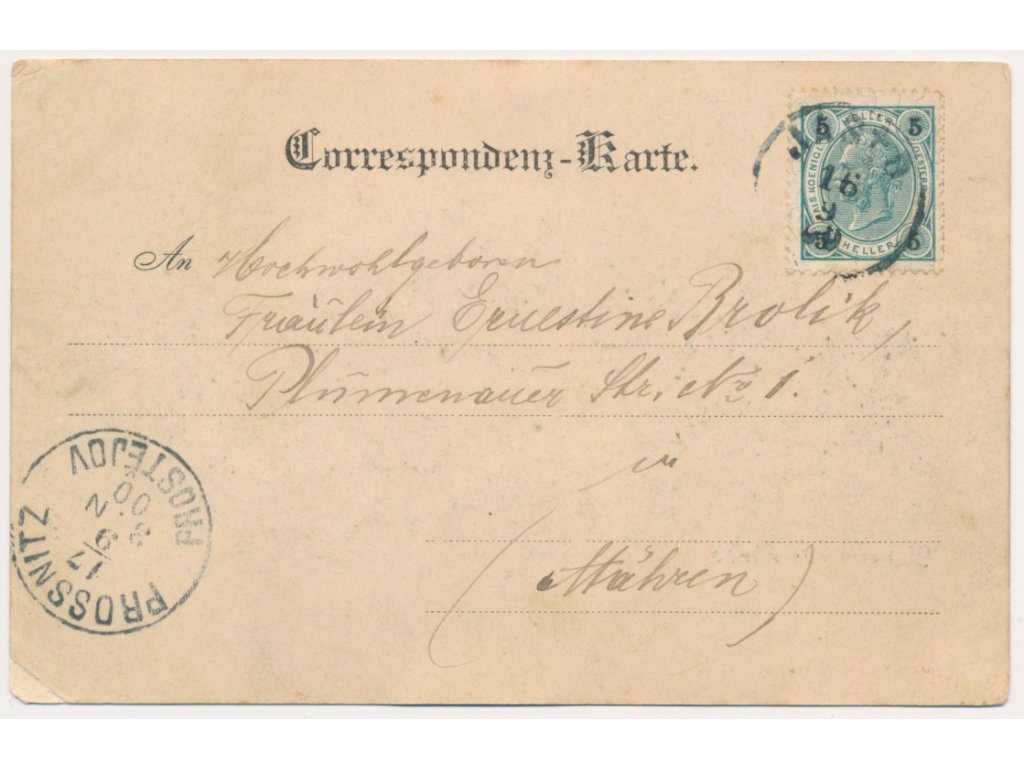 Correspondenz-Karte.
5 HELLER 5
16
9
5 HELLER 5
An Hochwohlgeboren
Fräulein Ernestine Brolik,
Plumenauer Str. No 1.
in
(Mähren)
PROSSNITZ
PROSTĚJOV
17
9
3. N
00